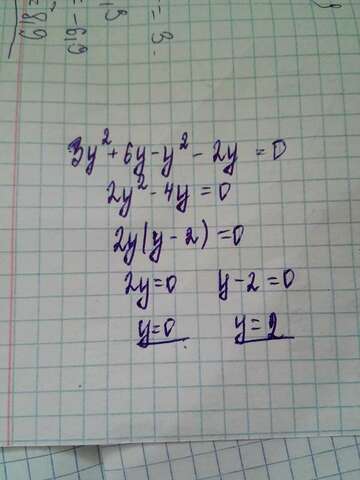 3y² + 6y - y² - 2y = 0
2y² - 4y = 0
2y(y - 2) = 0
2y = 0 y - 2 = 0
y = 0 y = 2